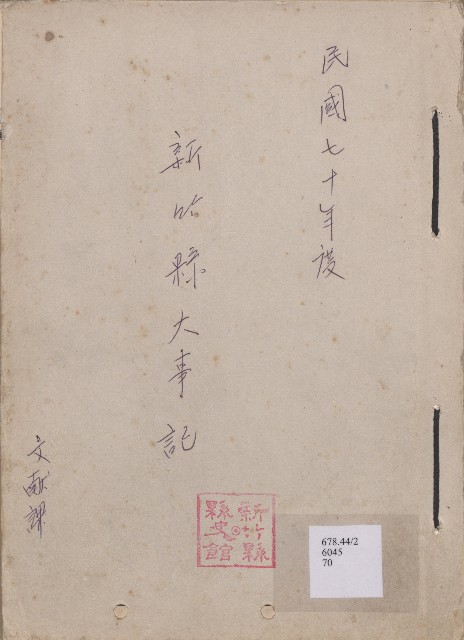 民國七十年度
新竹縣大事記
文献課
新竹縣
縣史館
678.44/2
6045
70